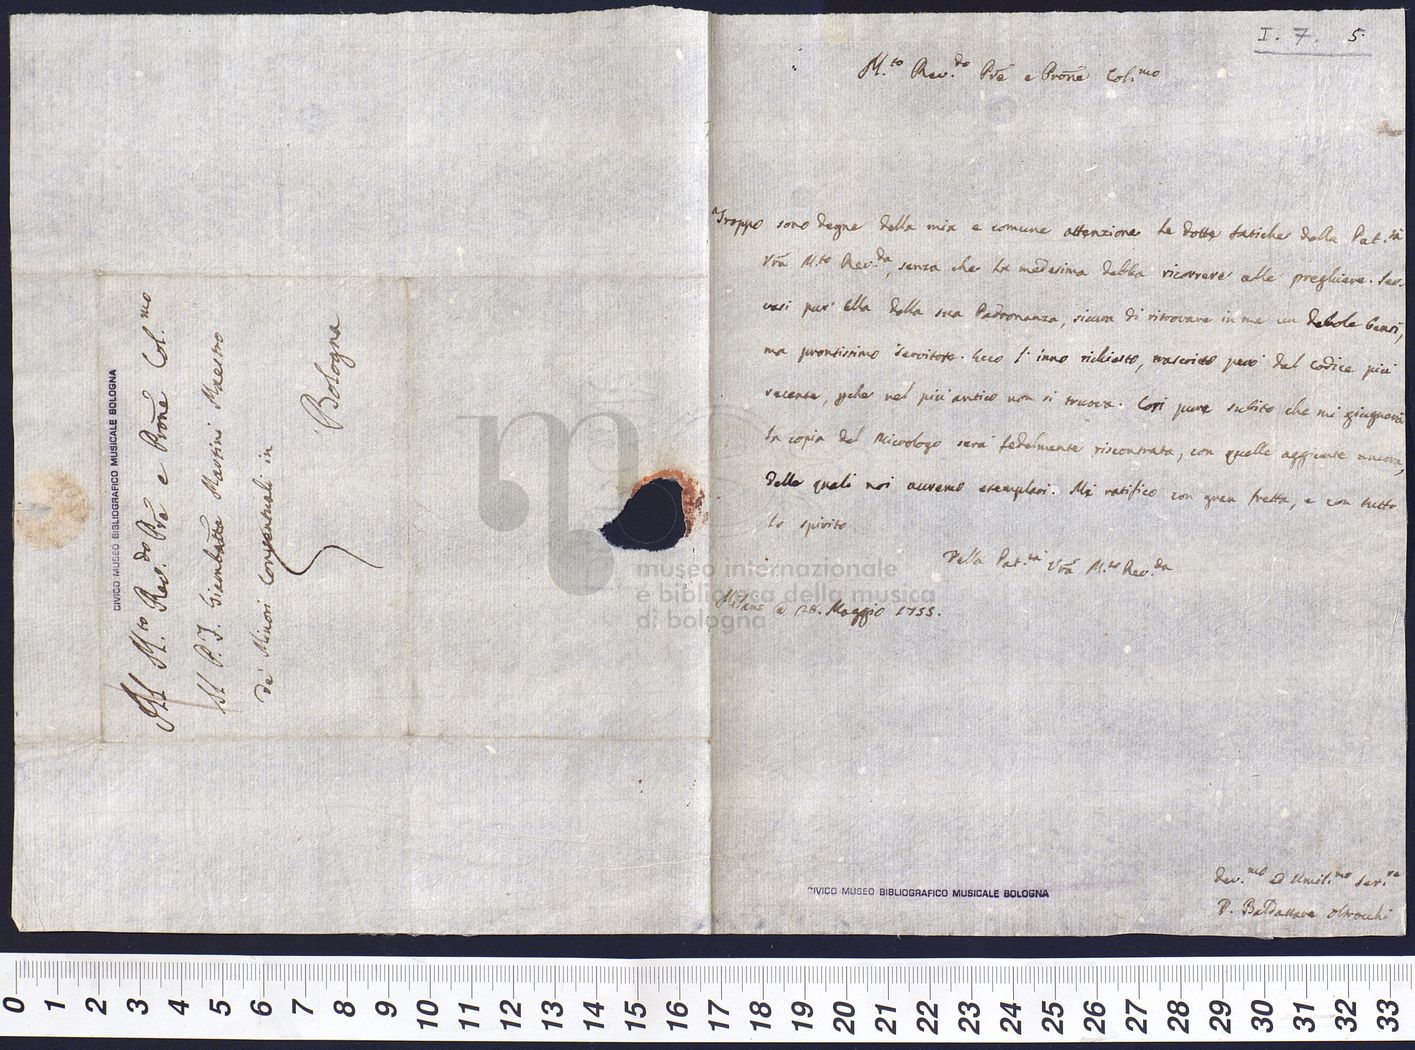 I. 7. 5.
M.to Rev.do Prē e Prōne Col.mo
Troppo sono degne della mia e comune attenzione le dotte fatiche della Pat.tà
Vrā M.to Rev.da, senza che la medesima debba ricorrere alle preghiere. Ser-
vasi pur Ella della sua Padronanza, sicura di ritrovare in me un debole bensì,
ma prontissimo servitore. Ecco l'inno richiesto, trascritto però dal Codice più
recente, pche nel più antico non si truova. Così pure subito che mi giugnerà
la copia del Micrologo sarà fedelmente riscontrata, con quelle aggiunte ancora,
delle quali noi avremo esemplari. Mi ratifico con gran fretta, e con tutto
lo spirito
Della Pat.tà Vrā M.to Rev.da
Milano a 28. Maggio 1755.
Dev.mo ed Umil.mo Serv.re
P. Baldassare Oltrocchi
Al M.to Rev.do Prē e Prōne Col.mo
Il P. F. Giambatta Martini Maestro
de' Minori Conventuali in
Bologna
CIVICO MUSEO BIBLIOGRAFICO MUSICALE BOLOGNA
CIVICO MUSEO BIBLIOGRAFICO MUSICALE BOLOGNA
museo internazionale
e biblioteca della musica
di bologna
0 1 2 3 4 5 6 7 8 9 10 11 12 13 14 15 16 17 18 19 20 21 22 23 24 25 26 27 28 29 30 31 32 33